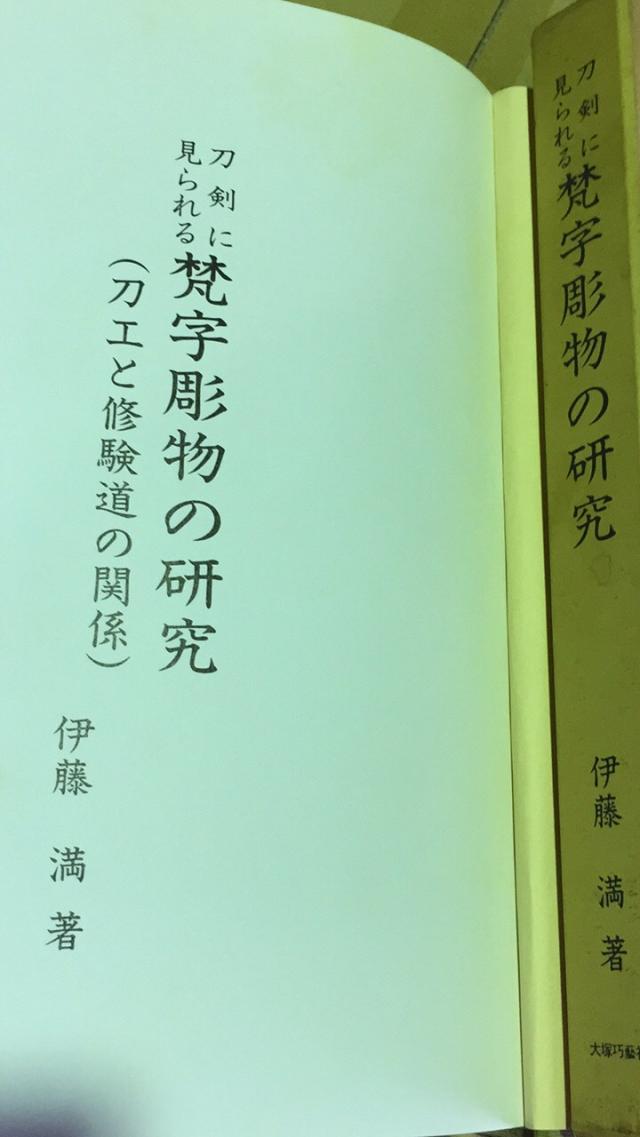 刀剣に
見られる
梵字彫物の研究
(刀工と修験道の関係)
伊藤 満 著
刀剣に
見られる
梵字彫物の研究
伊藤 満 著
大塚巧藝